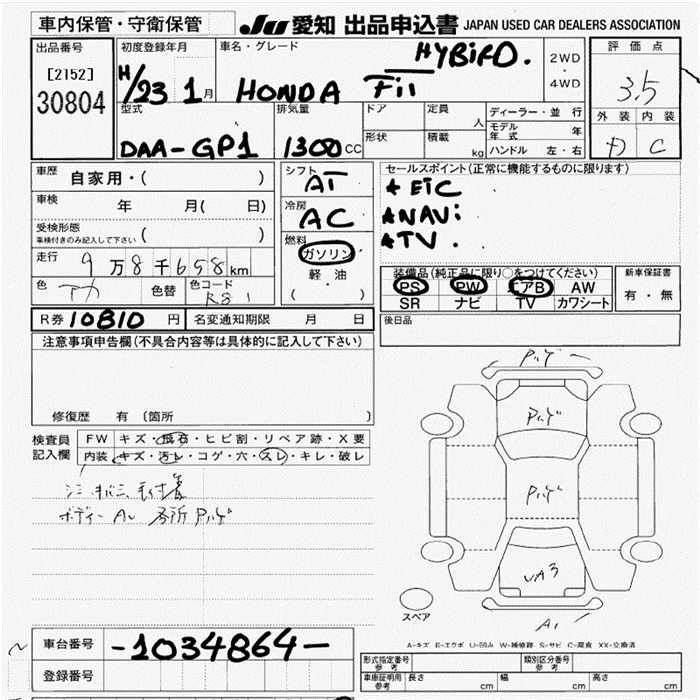 車内保管・守衛保管
JU 愛知 出品申込書 JAPAN USED CAR DEALERS ASSOCIATION
出品番号
[2152]
30804
初度登録年月
H/23 1月
車名・グレード
HONDA Fit HYBiRD.
2WD
・
4WD
評価点
3.5
外装 内装
D C
型式
DAA-GP1
排気量
1300cc
ドア
定員 人
形状
積載 kg
ディーラー・並行
モデル年式 年
ハンドル 左・右
車歴 自家用・( )
車検 年 月( 日)
受検形態
車検付きのみ記入して下さい ( )
走行 9万8千658km
色 アカ 色替 色コード R81
シフト AT
冷房 AC
燃料
ガソリン
軽・油
( )
セールスポイント(正常に機能するものに限ります)
★ETC
★NAVi
★TV.
装備品(純正品に限り○をつけてください)
PS PW エアB AW
SR ナビ TV カワシート
新車保証書
有・無
R券 10810円 名変通知期限 月 日
後日品
注意事項申告欄(不具合内容等は具体的に記入して下さい)
修復歴 有 〔箇所 〕
検査員
記入欄
FW キズ・飛石・ヒビ割・リペア跡・X要
内装 キズ・汚レ・コゲ・穴・スレ・キレ・破レ
ボディー
スペア
A-キズ E-エクボ U-凹み W-補修跡 S-サビ C-腐食 XX-交換済
車台番号 -1034864-
登録番号
形式指定番号 参考
類別区分番号 参考
車庫証明用 参考 長さ cm 幅 cm 高さ cm